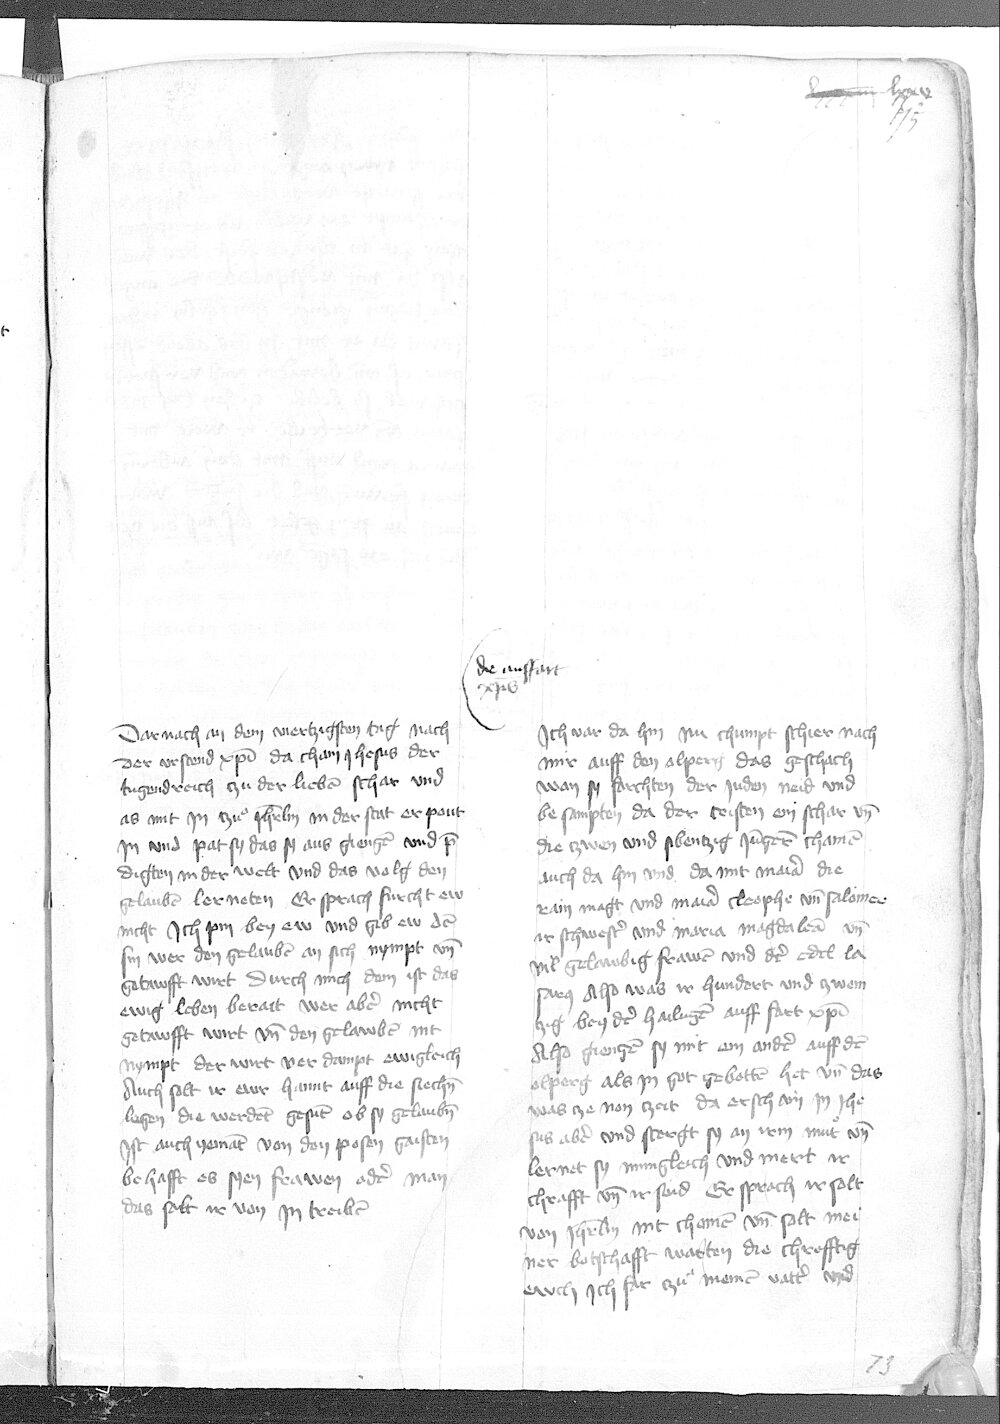 lxxv
75
die auffart
xp̄s
Dar nach an dem viertzigsten tag nach
der vrstend xp̄i da cham Jhesus der
tugendreich tzu der lieben̄ schar vnd
as mit in tzu Jhr̄lm in der stat er pout
in vnd pat sy das sy aus giengē vnd p̄
digten in der welt vnd das volg den
gelaubē lerneten Er sprach furcht ew
nicht Ich pin bey ew vnd gib ew dē
sin wer den gelaubē an sich nympt vn̄
getawfft wirt Durch mich dem ist das
ewig leben berait wer aber nicht
getawfft wirt vn̄ den gelawbē nit
nympt der wirt ver dampt ewigleich
Auch solt ir ewr hannt auff die siechn̄
legen die werdēt gesūt ob sy gelaubn̄
Ist auch yemāt von den posen gaisten
behafft es syen frawen oder man
das solt ir von in treibē
Ich var da hin nu chumpt schier nach
mir auff den olperg das geschach
wan sy forchten der Juden neid vnd
be sampten da der cristen ein schar vn̄
die tzwen vnd sibentzig Jūgēr chamē
auch da hin vnd da mit maria die
rain magt vnd maria cleophe vn̄ salomee
ir schwestēr vnd maria magdalēa vn̄
vil gelawbig frawē vnd dēr edel la
sarus Also was ir hundert vnd tzwein
tzig bey dēr hailigē auff fart xp̄i
Also giengē sy mit ein andēr auff dē
olperg als in got gebottē het vn̄ das
was tze non tzeit da erschein in Jhe
sus aber vnd stergt sy an irm mut vn̄
lernet sy inngleich vnd mert ir
chrafft vn̄ ir freid Er sprach ir solt
von Jhr̄lm nit chomē vn̄ solt mei
ner botschafft warten die chrefftig
ewch Ich far tzu meinē vatter vnd
73